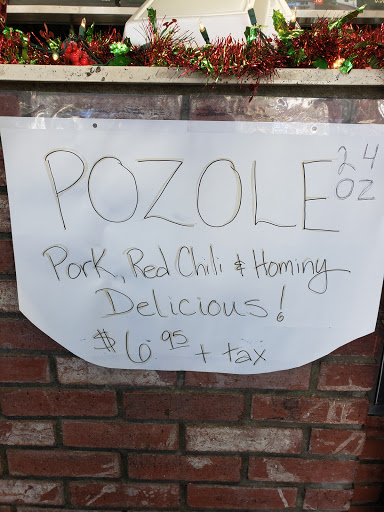 POZOLE 24 OZ
Pork, Red Chili & Hominy
Delicious!
$6.95 + tax